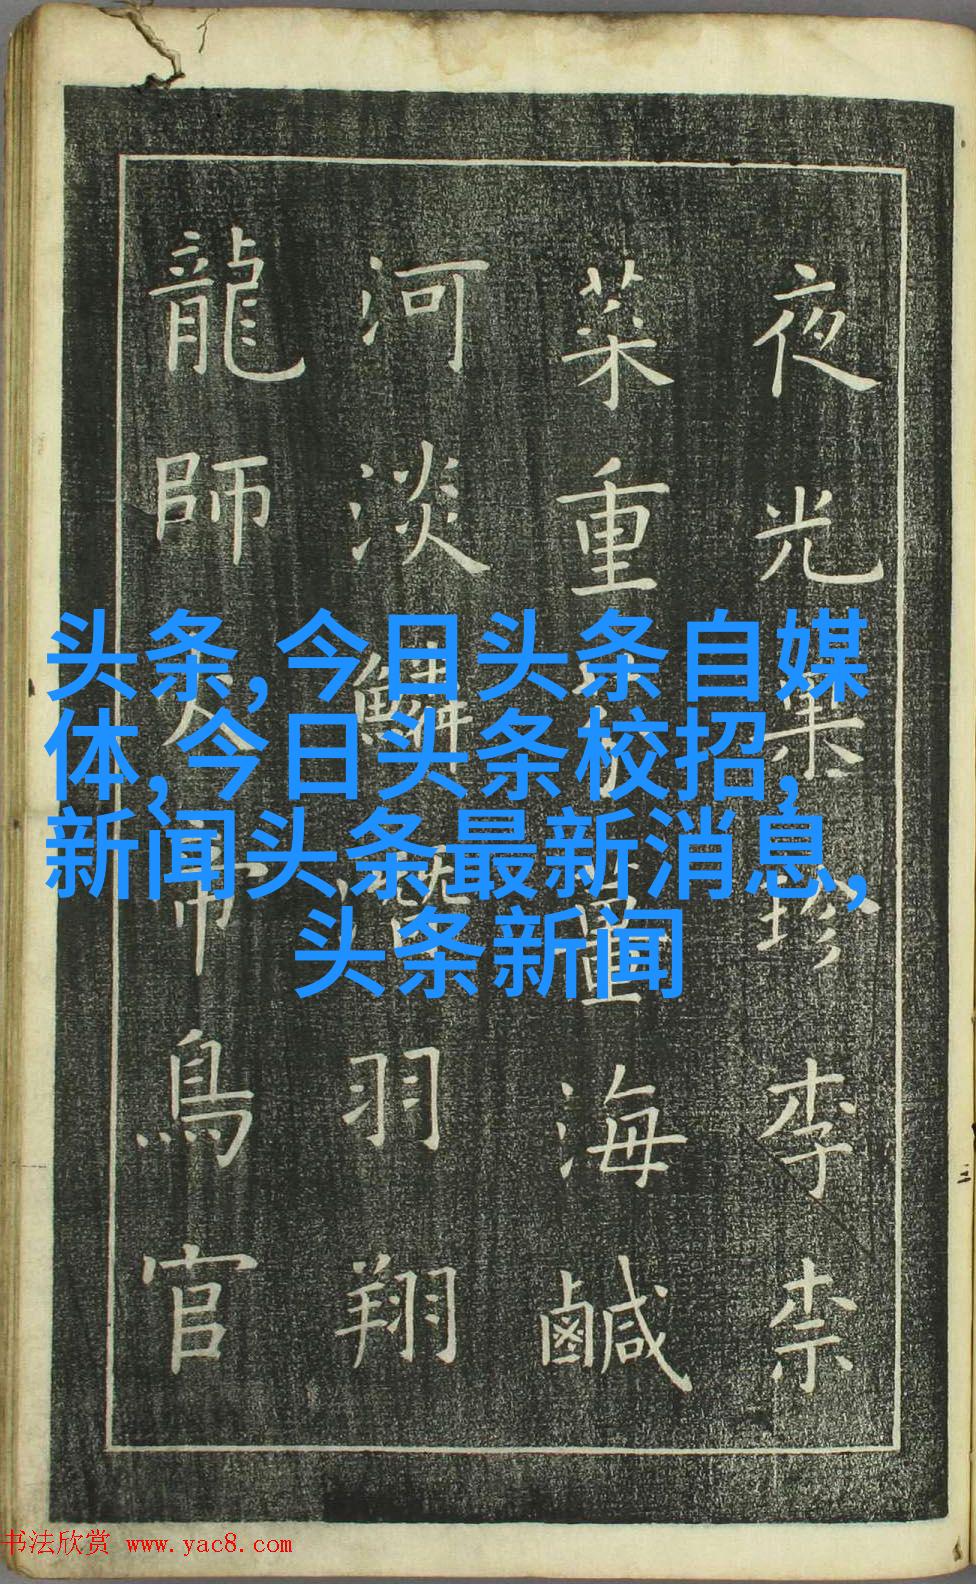 夜光菓珍李柰
菜重芥薑海鹹
河淡鱗潛羽翔
龍師火帝鳥官
头条,今日头条自媒
体,今日头条校招,
新闻头条最新消息,
头条新闻
书法欣赏 www.yac8.com